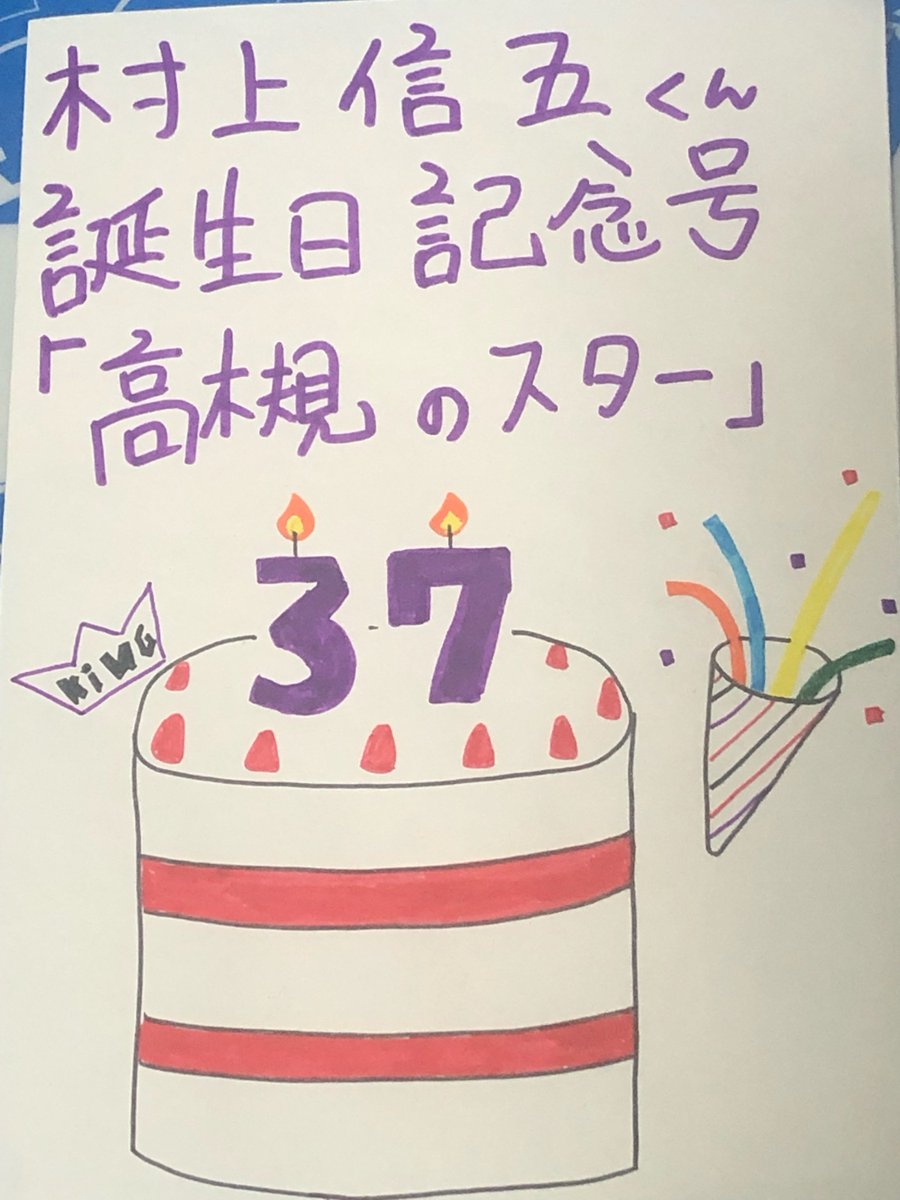 村上信五くん
誕生日記念号
「高槻のスター」
37
KiNG